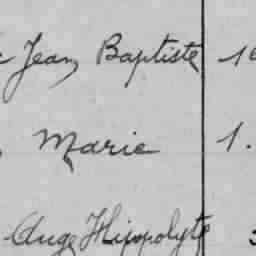 Jean Baptiste
Marie 1.
Ange Hippolyte